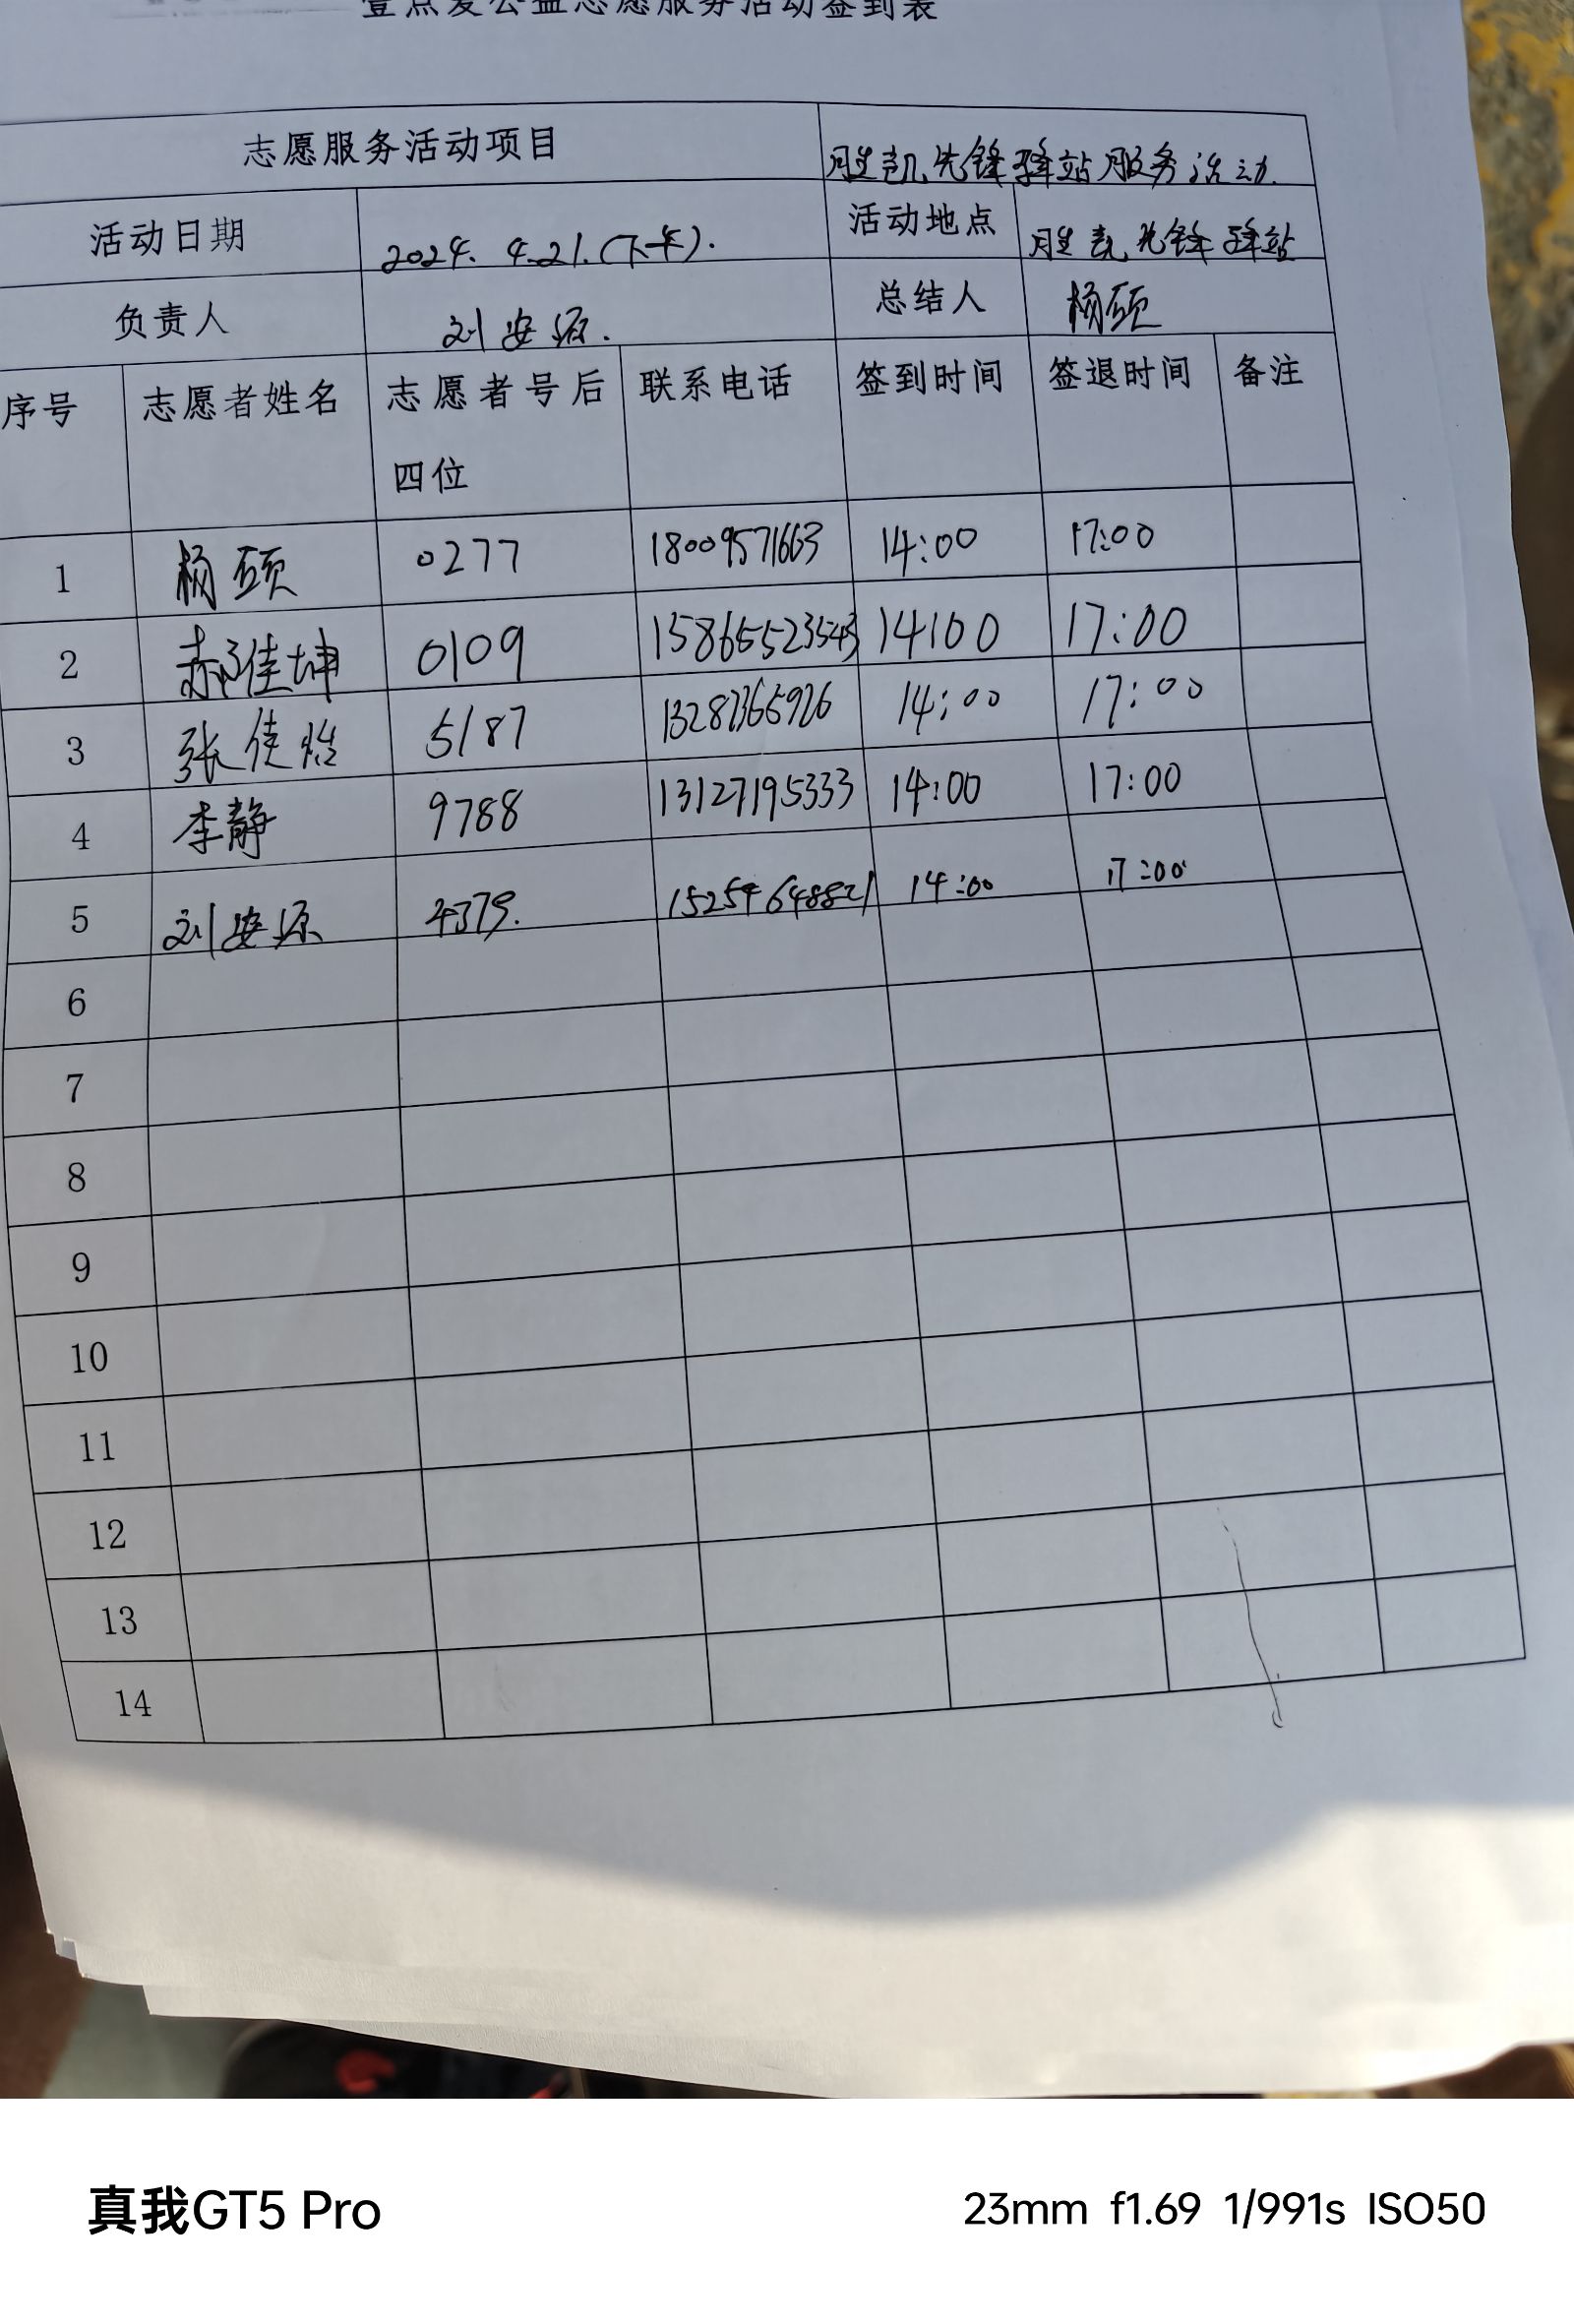 壹点爱公益志愿服务活动签到表
志愿服务活动项目 胜凯先锋驿站服务活动.
活动日期 2024. 4.21.(下午). 活动地点 胜凯先锋驿站
负责人 刘安源. 总结人 杨硕
序号 志愿者姓名 志愿者号后四位 联系电话 签到时间 签退时间 备注
1 杨硕 0277 18009571663 14:00 17:00
2 郝佳坤 0109 14:00 17:00
3 张佳怡 5187 13287365926 14:00 17:00
4 李静 9788 13127195333 14:00 17:00
5 刘安源 4379. 15254648821 14:00 17:00
6
7
8
9
10
11
12
13
14
真我GT5 Pro 23mm f1.69 1/991s ISO50